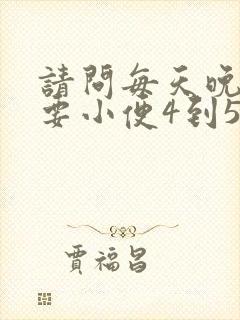 請問每天晚
要小便4到5
賈福昌